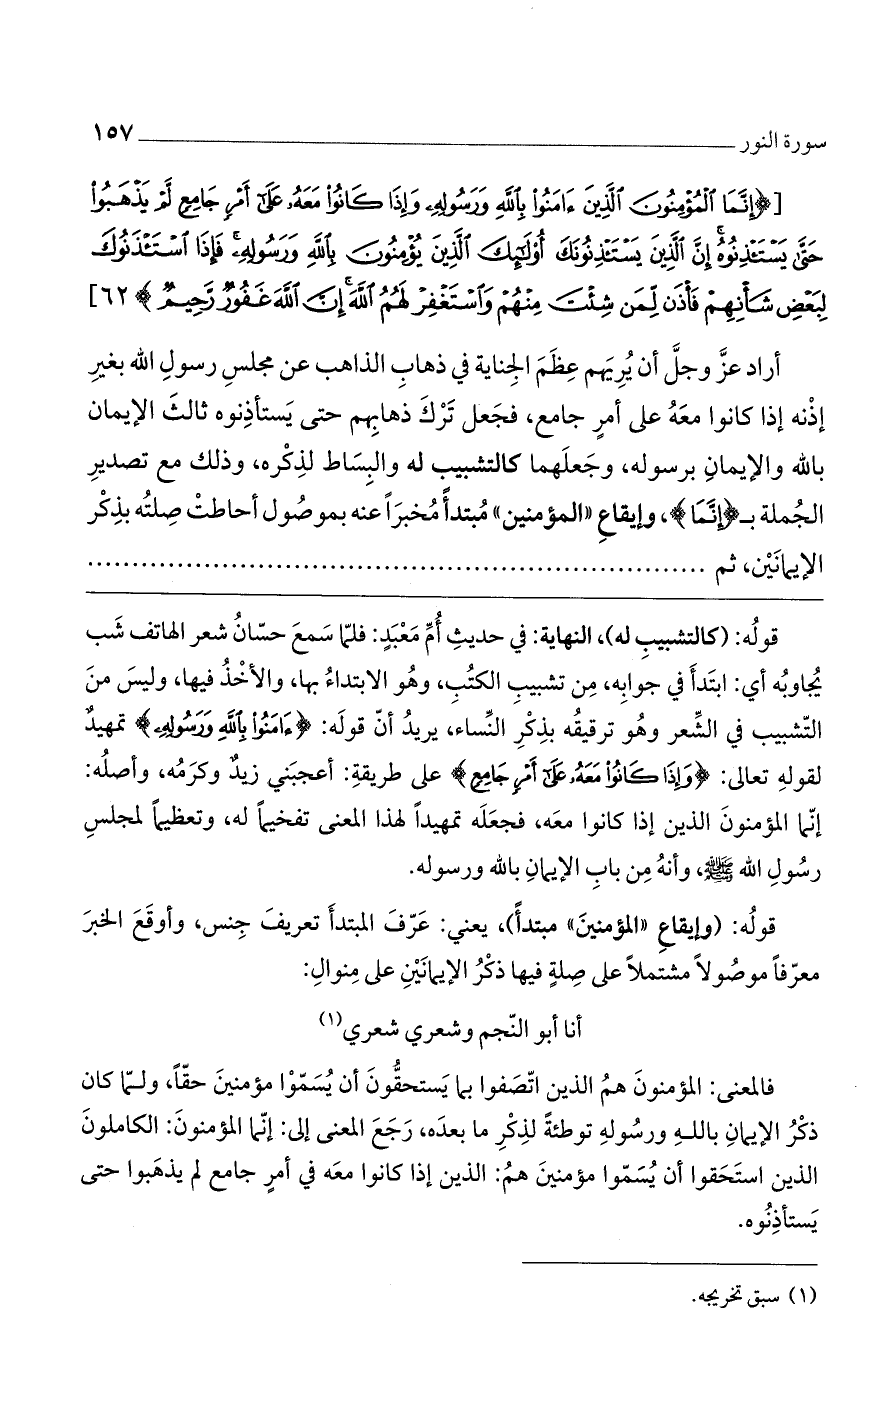 سورة النور ١٥٧
[﴿إِنَّمَا ٱلْمُؤْمِنُونَ ٱلَّذِينَ ءَامَنُوا۟ بِٱللَّهِ وَرَسُولِهِۦ وَإِذَا كَانُوا۟ مَعَهُۥ عَلَىٰٓ أَمْرٍ جَامِعٍ لَّمْ يَذْهَبُوا۟
حَتَّىٰ يَسْتَـْٔذِنُوهُ ۚ إِنَّ ٱلَّذِينَ يَسْتَـْٔذِنُونَكَ أُو۟لَـٰٓئِكَ ٱلَّذِينَ يُؤْمِنُونَ بِٱللَّهِ وَرَسُولِهِۦ ۚ فَإِذَا ٱسْتَـْٔذَنُوكَ
لِبَعْضِ شَأْنِهِمْ فَأْذَن لِّمَن شِئْتَ مِنْهُمْ وَٱسْتَغْفِرْ لَهُمُ ٱللَّهَ ۚ إِنَّ ٱللَّهَ غَفُورٌ رَّحِيمٌ﴾ ٦٢]
أراد عزَّ وجلَّ أن يُرِيَهم عِظَمَ الجِناية في ذهابِ الذاهب عن مجلسِ رسولِ الله بغيرِ
إذْنه إذا كانوا معَهُ على أمرٍ جامع، فجَعل تَرْكَ ذهابِهم حتى يَستأذِنوه ثالثَ الإيمان
بالله والإيمانِ برسوله، وجَعلَهما كالتشبيب له والبِسَاط لذِكْره، وذلك مع تصديرِ
الجُملة بـ﴿إِنَّمَا﴾، وإيقاعِ «المؤمنين» مُبتدأً مُخبَراً عنه بموصُول أحاطتْ صِلتُه بذِكْر
الإيمانَيْن، ثم ......................................................................
قولُه: (كالتشبيبِ له)، النهاية: في حديثِ أُمِّ مَعْبَدٍ: فلمّا سَمعَ حسّانُ شعر الهاتف شَب
يُجاوبُه أي: ابتَدأَ في جوابِه، مِن تشبيبِ الكتُبِ، وهُو الابتداءُ بها، والأخْذُ فيها، وليسَ منَ
التّشبيب في الشِّعر وهُو ترقيقُه بذِكْرِ النِّساء، يريدُ أنّ قولَه: ﴿ءَامَنُوا۟ بِٱللَّهِ وَرَسُولِهِۦ﴾ تمهيدٌ
لقولهِ تعالى: ﴿وَإِذَا كَانُوا۟ مَعَهُۥ عَلَىٰٓ أَمْرٍ جَامِعٍ﴾ على طريقةِ: أعجبَني زيدٌ وكرَمُه، وأصلُه:
إنّما المؤمنونَ الذين إذا كانوا معَه، فجعَلَه تمهيداً لهذا المعنى تفخيماً له، وتعظيماً لمجلسِ
رسُولِ الله ﷺ، وأنهُ مِن بابِ الإيمانِ بالله ورسوله.
قولُه: (وإيقاعِ «المؤمنينَ» مبتدأً)، يعني: عَرّفَ المبتدأَ تعريفَ جِنس، وأوقَعَ الخبرَ
معرّفاً موصُولاً مشتملاً على صِلةٍ فيها ذكْرُ الإيمانَيْنِ على مِنوالِ:
أنا أبو النّجم وشعري شعري(١)
فالمعنى: المؤمنونَ همُ الذين اتّصَفوا بما يَستحقُّونَ أن يُسَمّوْا مؤمنينَ حقّاً، ولـمّا كان
ذكْرُ الإيمانِ باللـهِ ورسُولهِ توطئةً لذِكْرِ ما بعدَه، رَجَعَ المعنى إلى: إنّما المؤمنونَ: الكاملونَ
الذين استَحَقوا أن يُسَمّوا مؤمنينَ همُ: الذين إذا كانوا معَه في أمرٍ جامع لم يذهَبوا حتى
يَستأذِنُوه.
(١) سبق تخريجه.